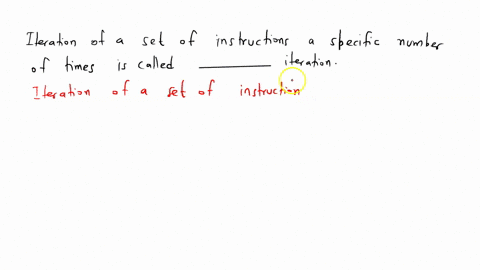 Iteration of a set of instructions a specific number
of times is called ________ iteration.
Iteration of a set of instruction